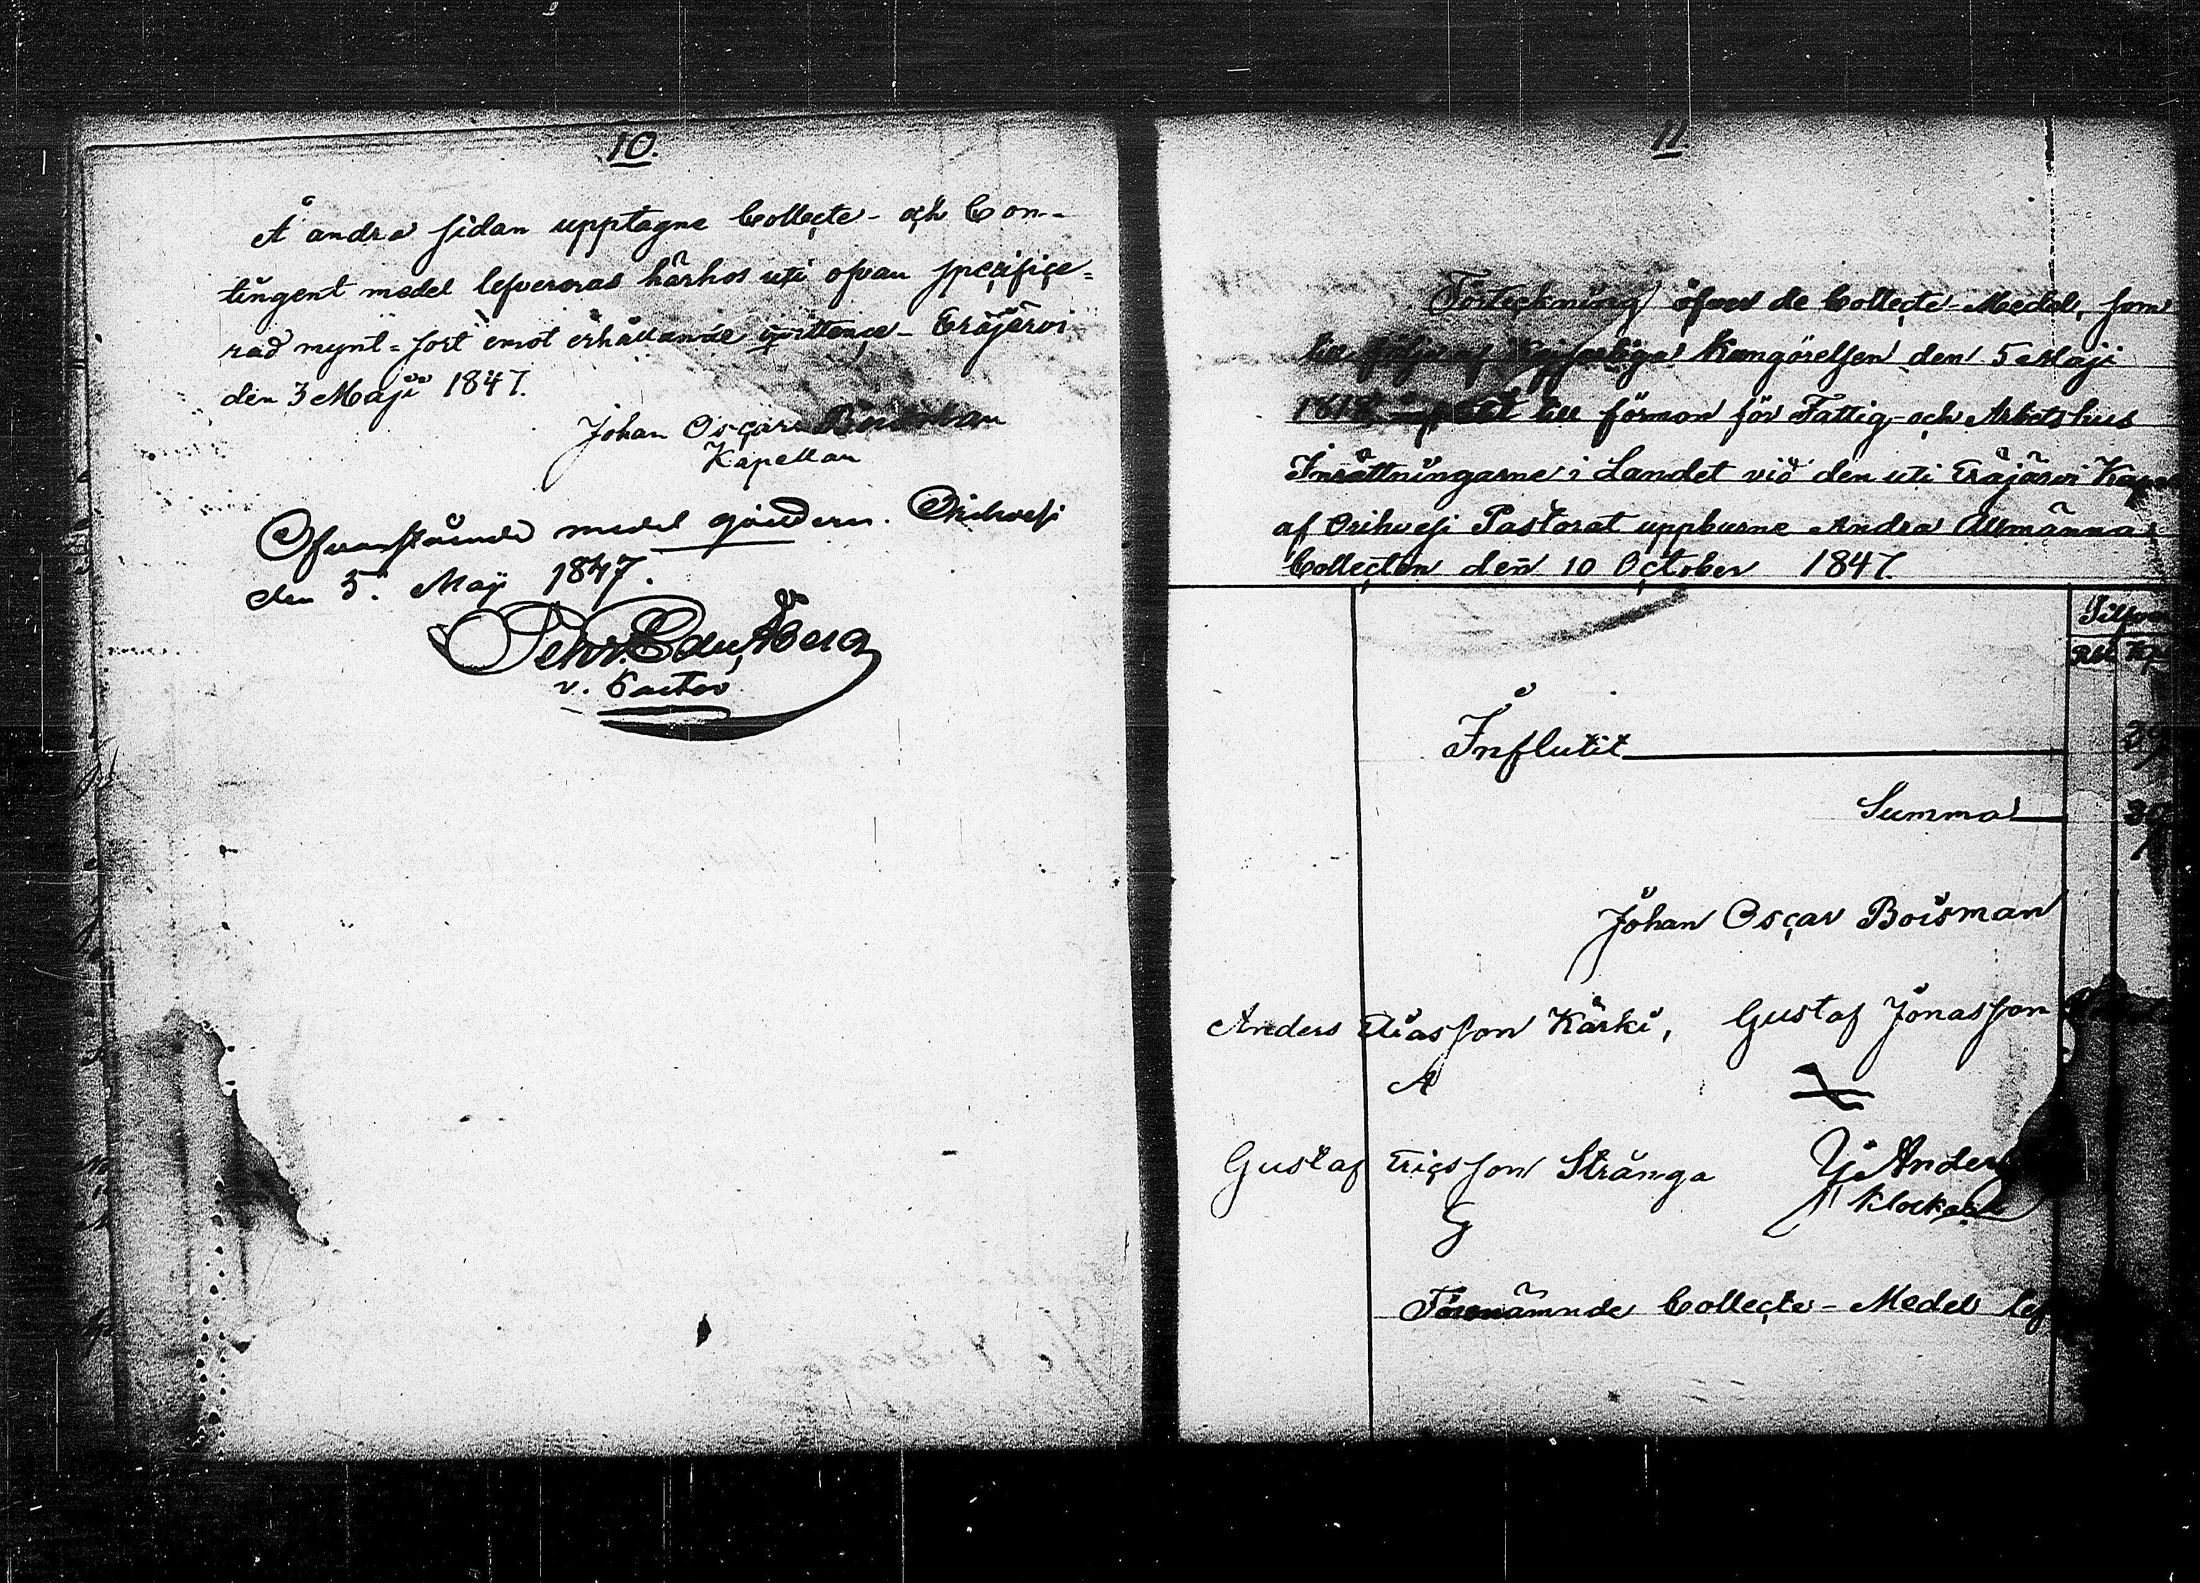 10.
Å andra sidan upptagne Collecte- och Con-
tingent medel lefvereras härhos uti ofvan specifice=
rad mynt=sort emot erhållande qvittence- Eräjärvi
den 3 Maji 1847.
Johan Oscar Boisman
Kapellan
Ofvanstående medel Orihvesi
den 5. Maji 1847.
Pehr Edv. Åberg
v. Pastor
11.
Förteckning öfver de Collecte-Medel, som
till följe af Kejserliga Kungörelsen den 5 Maji
till förmon för Fattig- och Arbetshus
Inrättningarne i Landet vid den uti Eräjärvi
af Orihvesi Pastorat uppburne Andra Allmänna
Collecten den 10 October 1847.
Rbl Kp
Influtit
Summa
Johan Oscar Boisman
Anders Eliasson Kärki, Gustaf Jonasson
A
Gustaf Ericsson Strånga Anders
G Klockare
Förenämnde Collecte-Medel lef